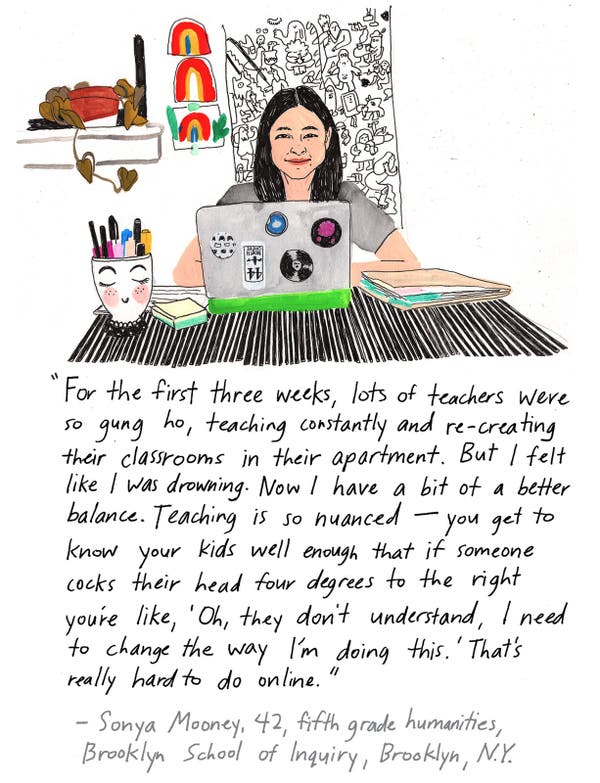 "For the first three weeks, lots of teachers were
so gung ho, teaching constantly and re-creating
their classrooms in their apartment. But I felt
like I was drowning. Now I have a bit of a better
balance. Teaching is so nuanced — you get to
know your kids well enough that if someone
cocks their head four degrees to the right
you're like, 'Oh, they don't understand, I need
to change the way I'm doing this.' That's
really hard to do online."
– Sonya Mooney, 42, fifth grade humanities,
Brooklyn School of Inquiry, Brooklyn, N.Y.